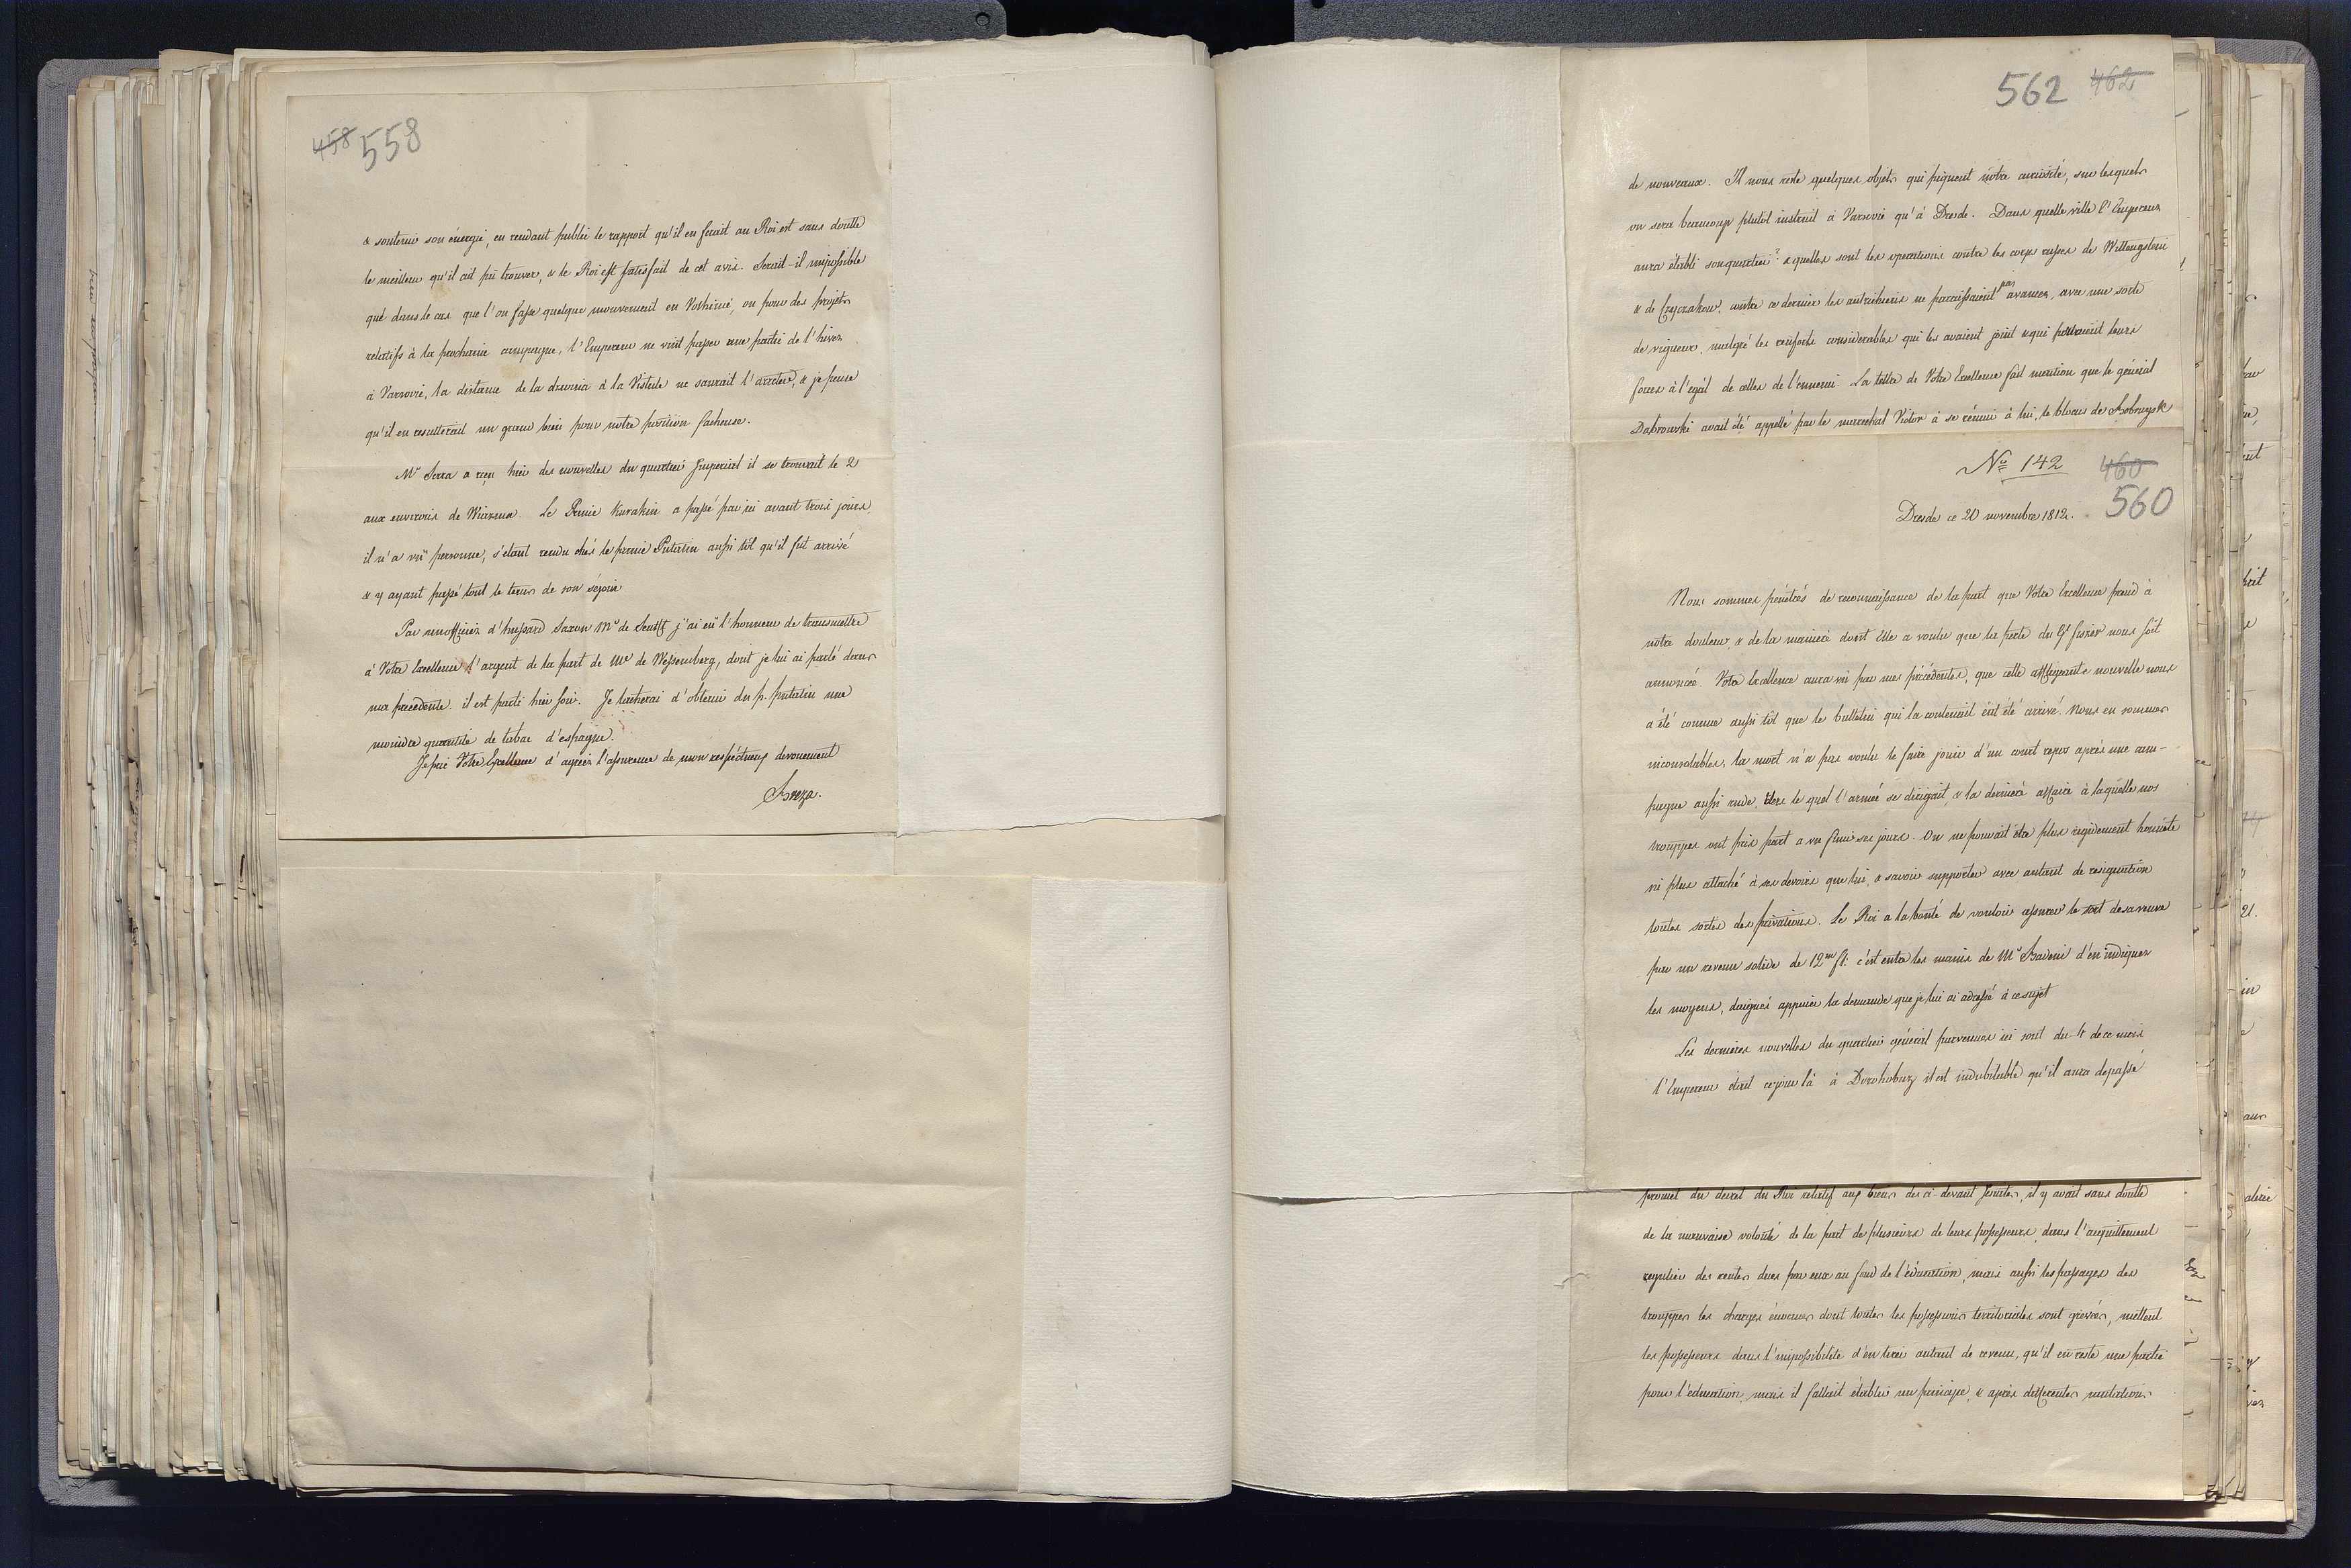 458 558
& soutenir son énergie, en rendant public le rapport qu'il en ferait au Roi est sans doutte
le meilleur qu'il ait pû trouver, & le Roi est satisfait de cet avis. Serait-il impossible
que dans le cas que l'on fasse quelque mouvement en Volhinie, ou pour des projets
relatifs à la prochaine campagne, l'Empereur ne vint passer une partie de l'hiver
à Varsovie, la distance de la à la Vistule ne saurait l'arreter, & je pense
qu'il en resulterait un grand bien pour notre position facheuse.
Mr Serra a reçu hier des nouvelles du quartier Imperial il se trouvait le 2
aux environs de Wiazma. Le Prince Kurakin a passé par ici avant trois jours,
il n'a vû personne, s'etant rendu chés le prince Putiatin aussi tôt qu'il fut arrivé
& y ayant passé tout le tems de son séjour
Par un officier d'hussard Saxon Mr de j'ai eû l'honneur de transmettre
à Votre Excellence l'argent de la part de Mr de Wessemberg, dont je lui ai parlé dans
ma precedente. il est parti hier soir. Je tacherai d'obtenir du p. putiatin une
moindre quantité de tabac d'espagne.
Je prie Votre Excellence d'agréer l'assurance de mon respéctueux devouement
Breza.
562 462
de nouveaux. Il nous reste quelques objets qui piquent nôtre curiosité, sur lesquels
on sera beaucoup plutot instruit à Varsovie qu'à Dresde. Dans quelle ville l'Empereur
aura établi son quartier? & quelles sont les operations contre les corps russes de Wittengstein
& de, contre ce dernier les autrichiens ne paraissaient pas avancer, avec une sorte
de vigueur, malgré les renforts considerables qui les avaient joint & qui portaient leurs
forces à l'egal de celles de l'ennemi. La lettre de Votre Excellence fait mention que le général
Dabrowski avait été appellé par le marechal Victor à se réunir à lui, le blocus de Bobruysk
No 142 460
Dresde ce 20 novembre 1812. 560
Nous sommes pénétrés de reconnaissance de la part que Votre Excellence prend à
notre douleur, & de la maniere dont Elle a voulu que la perte du Gl fiszer nous soit
annoncée. Votre Excellence aura vû par mes précédentes, que cette affligeante nouvelle nous
a été connue aussi tôt que le bulletin qui la contenait eût été arrivé. Nous en sommes
inconsolables, la mort n'a pas voulu le faire jouir d'un court repos après une cam-
pagne aussi rude, vers le quel l'armée se dirigait, & la dernière affaire à laquelle nos
trouppes ont pris part a vu finir ses jours. On ne pouvait être plus rigidement honnête
ni plus attaché à ses devoirs que lui, & savoir supporter avec autant de resignation
toutes sortes des privations. Le Roi a la bonté de vouloir assurer le sort de sa veuve
par un revenu solide de 12m fl. c'est entre les mains de Mr Badeni d'en indiquer
les moyens, daignés appuier la demande que je lui ai adressé à ce sujet
Les dernières nouvelles du quartier général parvenues ici sont du 4 de ce mois
l'Empereur était ce jour là à Dorohobuz il est indubitable qu'il aura depassé
promet du decret du Roi relatif aux biens des ci-devant Jesuites, il y avait sans doutte
de la mauvaise volonté de la part de plusieurs de leurs possesseurs, dans l'acquittement
regulier des rentes dues par eux au fond de l'éducation, mais aussi les passages des
trouppes les charges énormes dont toutes les possessions territoriales sont grevées, mettent
les possesseurs dans l'impossibilité d'en tirer autant de revenu, qu'il en reste une partie
pour l'education, mais il fallait établir un principe, & après differentes mutations